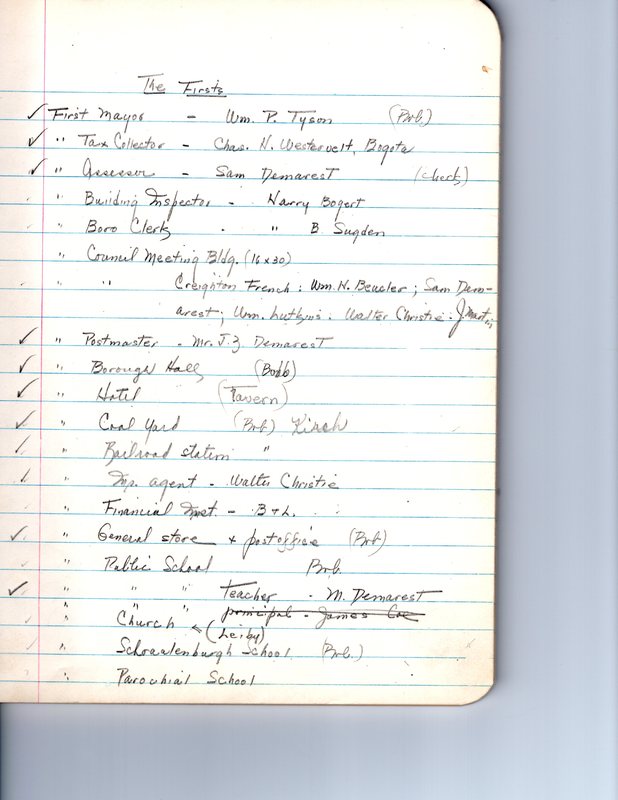 The Firsts
✓ First Mayor - Wm. P. Tyson (Bob.)
✓ " Tax Collector - Chas. N. Westervelt, Bogota
✓ " Assessor - Sam Demarest (check)
" Building Inspector - Harry Bogert
" Boro Clerk - " B. Sugden
" Council Meeting Bldg. (16 x 30)
" " Creighton French : Wm. H. Beucler ; Sam Dem-
arest ; Wm. Lutkins . Walter Christie : J. Martin
✓ " Postmaster - Mr. J. Z. Demarest
✓ " Borough Hall (Bobb)
✓ " Hotel (Tavern)
✓ " Coal Yard (Bob) Kirsch
✓ " Railroad station "
✓ " Inp. agent - Walter Christie
" Financial Inst. - B + L.
✓ " General store + postoffice (Bob)
" Public School Bob.
✓ " " " Teacher - M. Demarest
" principal - James Coe
" Church < (Leiby)
" Schraalenburgh School (Bob.)
" Parochial School